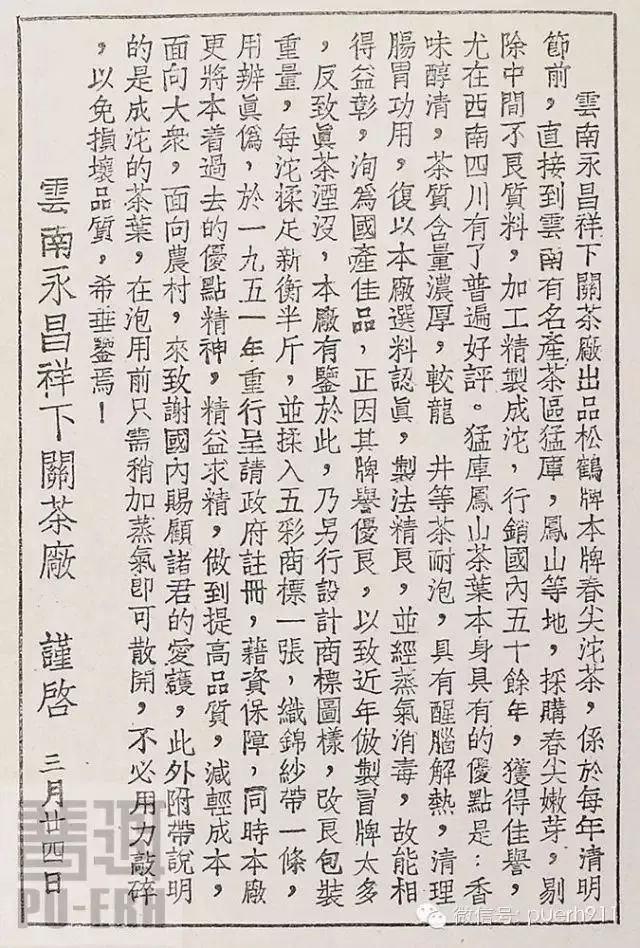 雲南永昌祥下關茶廠出品松鶴牌本牌春尖沱茶，係於每年清明
節前，直接到雲南有名產茶區猛庫，鳳山等地，採購春尖嫩芽。剔
除中間不良質料，加工精製成沱，行銷國內五十餘年，獲得佳譽，
尤在西南四川有了普遍好評。猛庫鳳山茶葉本身具有的優點是：香
味醇清，茶質含量濃厚，較龍　井等茶耐泡，具有醒腦解熱，清理
腸胃功用，復以本廠選料認眞，製法精良，並經蒸氣消毒，故能相
得益彰，洵爲國產佳品，正因其牌譽優良，以致近年倣製冒牌太多
，反致眞茶湮沒，本廠有鑒於此，乃另行設計商標圖樣，改良包裝
重量，每沱揉足新衡半斤，並揉入五彩商標一張，織錦紗帶一條，
用辨眞僞，於一九五一年重行呈請政府註冊，藉資保障，同時本廠
更將本着過去的優點精神，精益求精，做到提高品質，減輕成本，
面向大衆，面向農村，來致謝國內賜顧諸君的愛護，此外附帶說明
的是成沱的茶葉，在泡用前只需稍加蒸氣卽可散開，不必用力敲碎
，以免損壞品質，希垂鑒焉！
雲南永昌祥下關茶廠　謹啓　三月廿四日
普洱
PU-ERH
微信号: puerh911